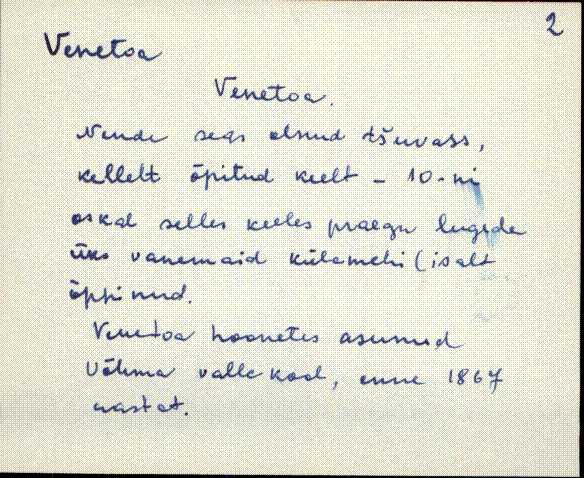 2
Venetoa
Venetoa.
Nende seas olnud tšuvass,
kellelt õpitud keelt - 10-ni
oskab selles keeles praegu lugeda
üks vanemaid külamehi (isalt
õppinud.
Venetoa hoonetes asunud
Võhma valla kool, enne 1867
aastat.